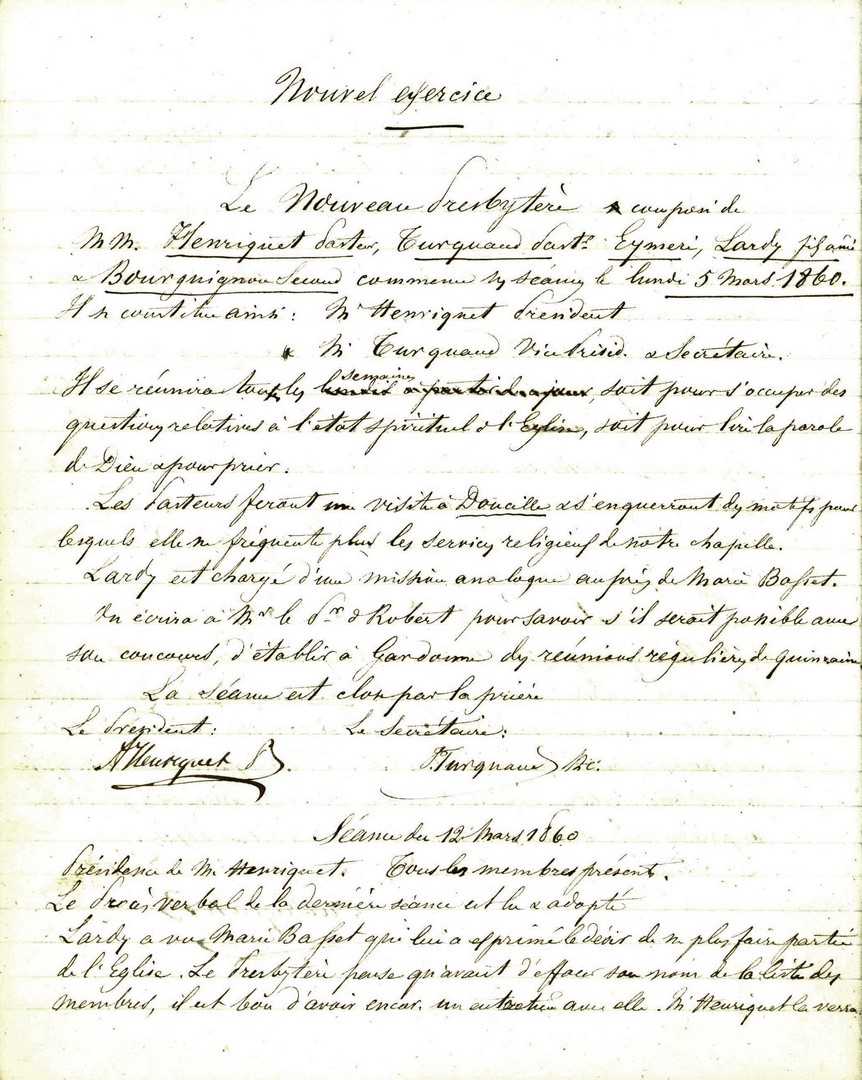 Nouvel exercice
Le Nouveau Presbytère composé de
MM. Henriquet Pasteur, Turquand Past.r Eymeri, Lardy fils aîné
& Bourguignon Second commence ses séances le lundi 5 Mars 1860.
Il se constitue ainsi: Mr Henriquet Président
& Mr Turquand Vice Présid. & Secrétaire.
Il se réunira toutes les semaines, soit pour s'occuper des
questions relatives à l'état spirituel de l'Eglise, soit pour lire la parole
de Dieu & pour prier.
Les Pasteurs feront une visite à Douaille & s'enquerront des motifs pour
lesquels elle ne fréquente plus les services religieux de notre chapelle.
Lardy est chargé d'une mission analogue auprès de Marie Basset.
On écrira à Mr le Pr de Robert pour savoir s'il serait possible avec
son concours, d'établir à Gardonne des réunions régulières de quinzaine
La Séance est close par la prière
Le Président: Le Secrétaire:
A Henriquet P. Turquand Sec.
Séance du 12 Mars 1860
Présidence de M. Henriquet. Tous les membres présent.
Le Procès verbal de la dernière séance est lu & adopté
Lardy a vu Marie Basset qui lui a exprimé le désir de ne plus faire partie
de l'Eglise. Le Presbytère pense qu'avant d'effacer son nom de la liste des
membres, il est bon d'avoir encor. un entretien avec elle. Mr Henriquet la verra